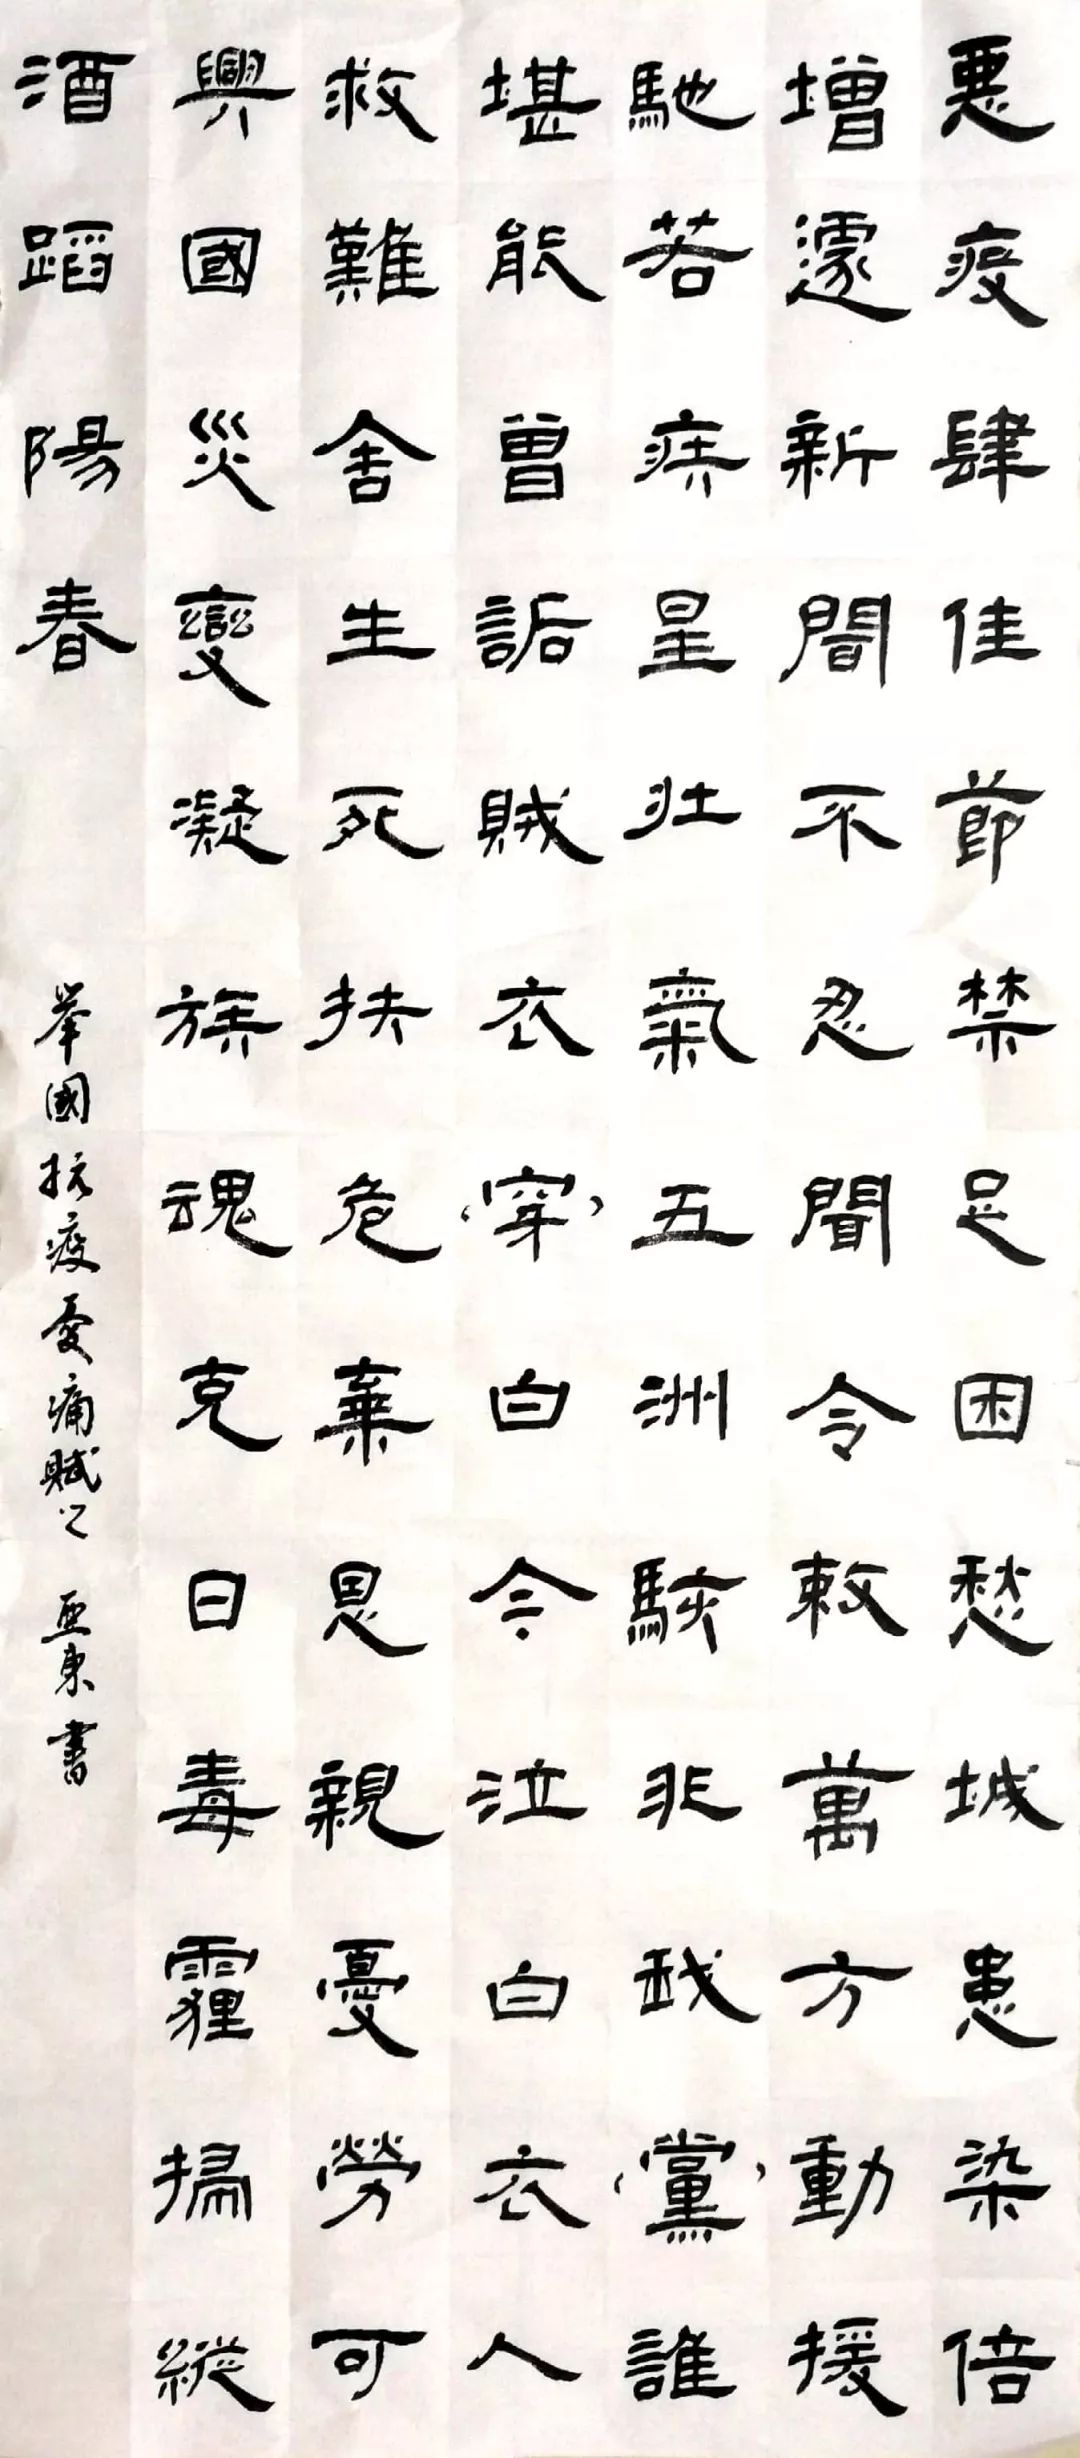 惡疫肆佳節禁足困愁城患染倍
增遽新聞不忍聞令敕萬方動援
馳若疾星壯氣五洲駭非我(黨)誰
堪能曾詬賊衣(穿)白今泣白衣人
救難舍生死扶危棄恩親憂勞可
興國災變凝族魂克日毒霾掃縱
酒蹈陽春
舉國抗疫憂痛賦之 亞東書